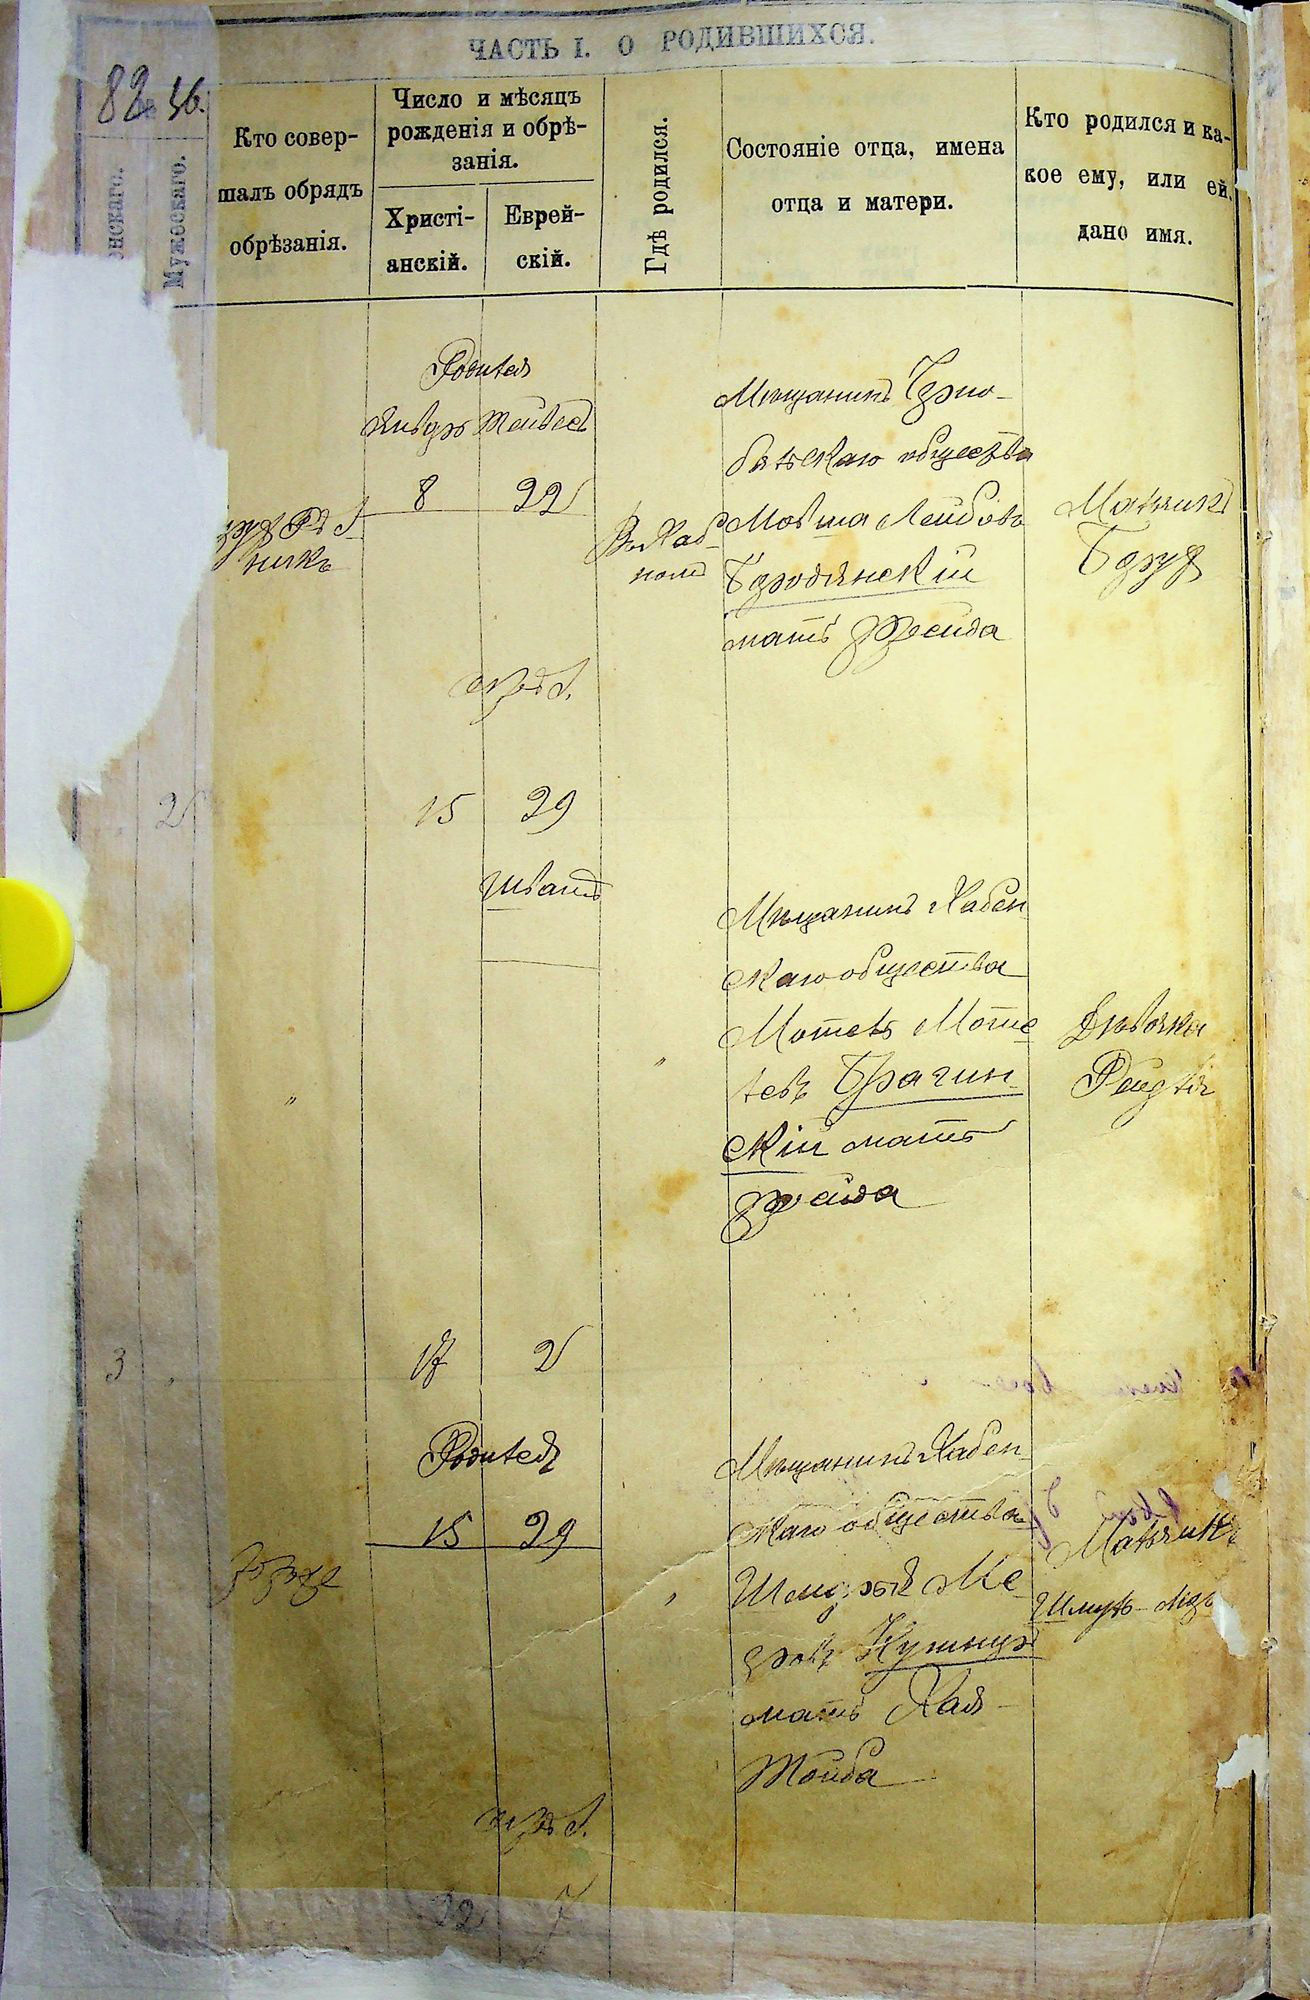 ЧАСТЬ I. О РОДИВШИХСЯ.
82 36.
Мужескаго.
Кто совер-
шалъ обрядъ
обрѣзанія.
Число и мѣсяцъ
рожденія и обрѣ-
занія.
Христі-
анскій.
Еврей-
скій.
Гдѣ родился.
Состояніе отца, имена
отца и матери.
Кто родился и ка-
кое ему, или ей,
дано имя.
Родился
Январь Тейвесъ
8 22
Мѣщанинъ Черно-
быльскаго общества
Мовша Лейбовъ
Бородянскій
мать Фрейда
Мальчикъ
Борух
15 29
2
Шватъ
Мѣщанинъ Хабен
скаго общества
Мотель Моте
левъ Брагин-
скій мать
Фрейда
Дѣвочка
Рейзля
3
17 2
Родился
15 29
Мѣщанинъ Хабен-
скаго общества
Ме
Кушнир
мать Хая-
Тойба
Мальчикъ
22 7